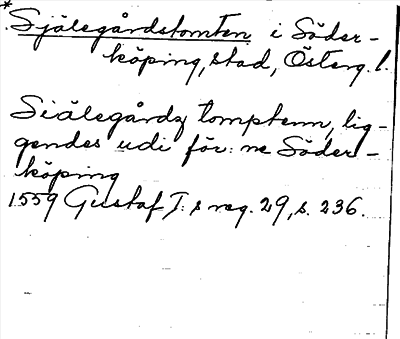 *Själegårdstomten i Söder-
köping, stad, Österg. l.
Siälegårdz tomptenn, lig-
gendes udi för: ne Söder-
köping
1559 Gustaf I: s reg. 29, s. 236.